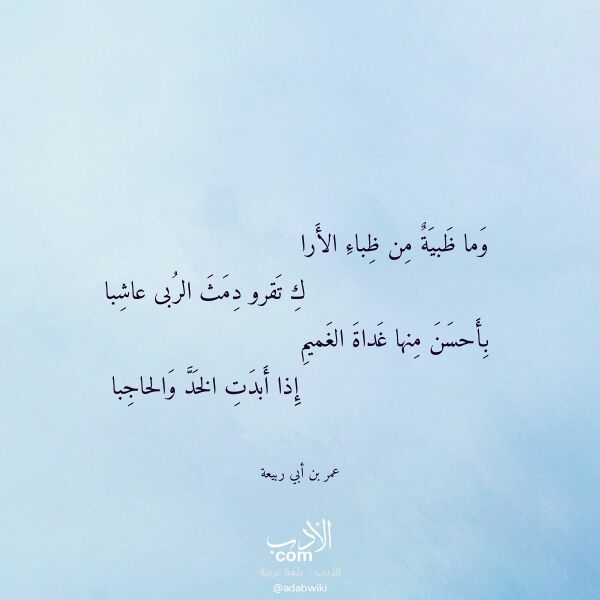 وَما ظَبيَةٌ مِن ظِباءِ الأَرا
كِ تَقرو دِمَثَ الرُبى عاشِبا
بِأَحسَنَ مِنها غَداةَ الغَميمِ
إِذا أَبدَتِ الخَدَّ وَالحاجِبا
عمر بن أبي ربيعة
الأدب
com
الأدب .. بلغة عربية
@adabwiki